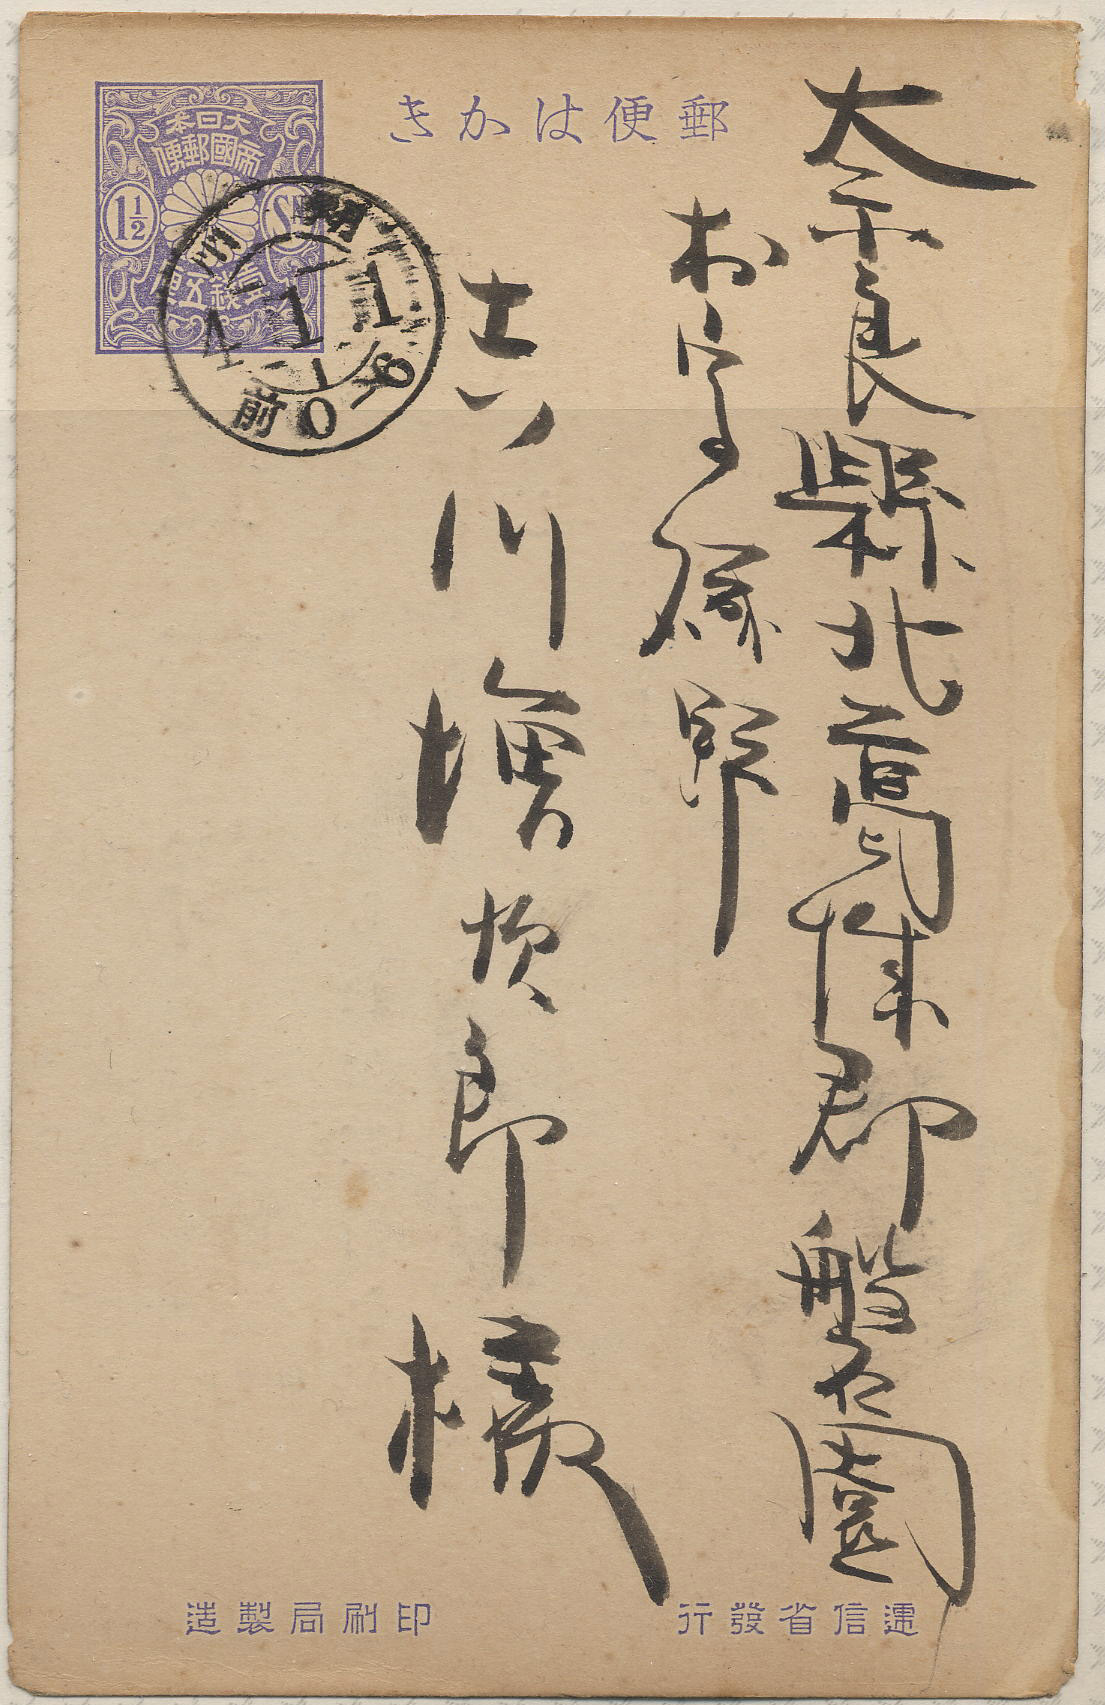 郵便はかき
大日本
帝國郵便
1½ Sn
壹錢五厘
4 1 1
前0-6
奈良縣北葛城郡磐園
村字
吉川増次郎様
逓信省發行
印刷局製造